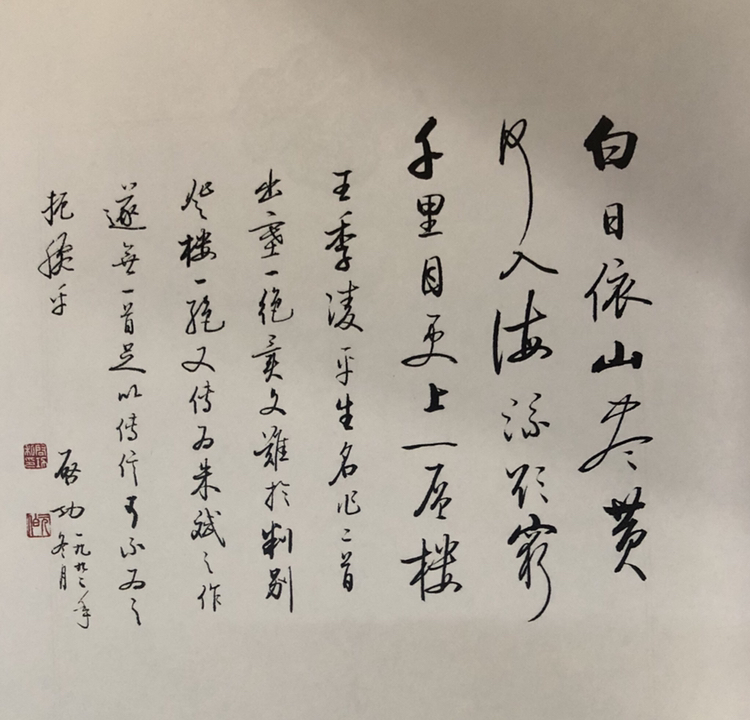 白日依山尽黄
河入海流欲穷
千里目更上一层楼
王季凌平生名作二首
出塞一绝异文难於判别
登楼一绝又传为朱斌之作
遂無一首足以传信可不为之
扼腕乎
启功 一九九二年冬月